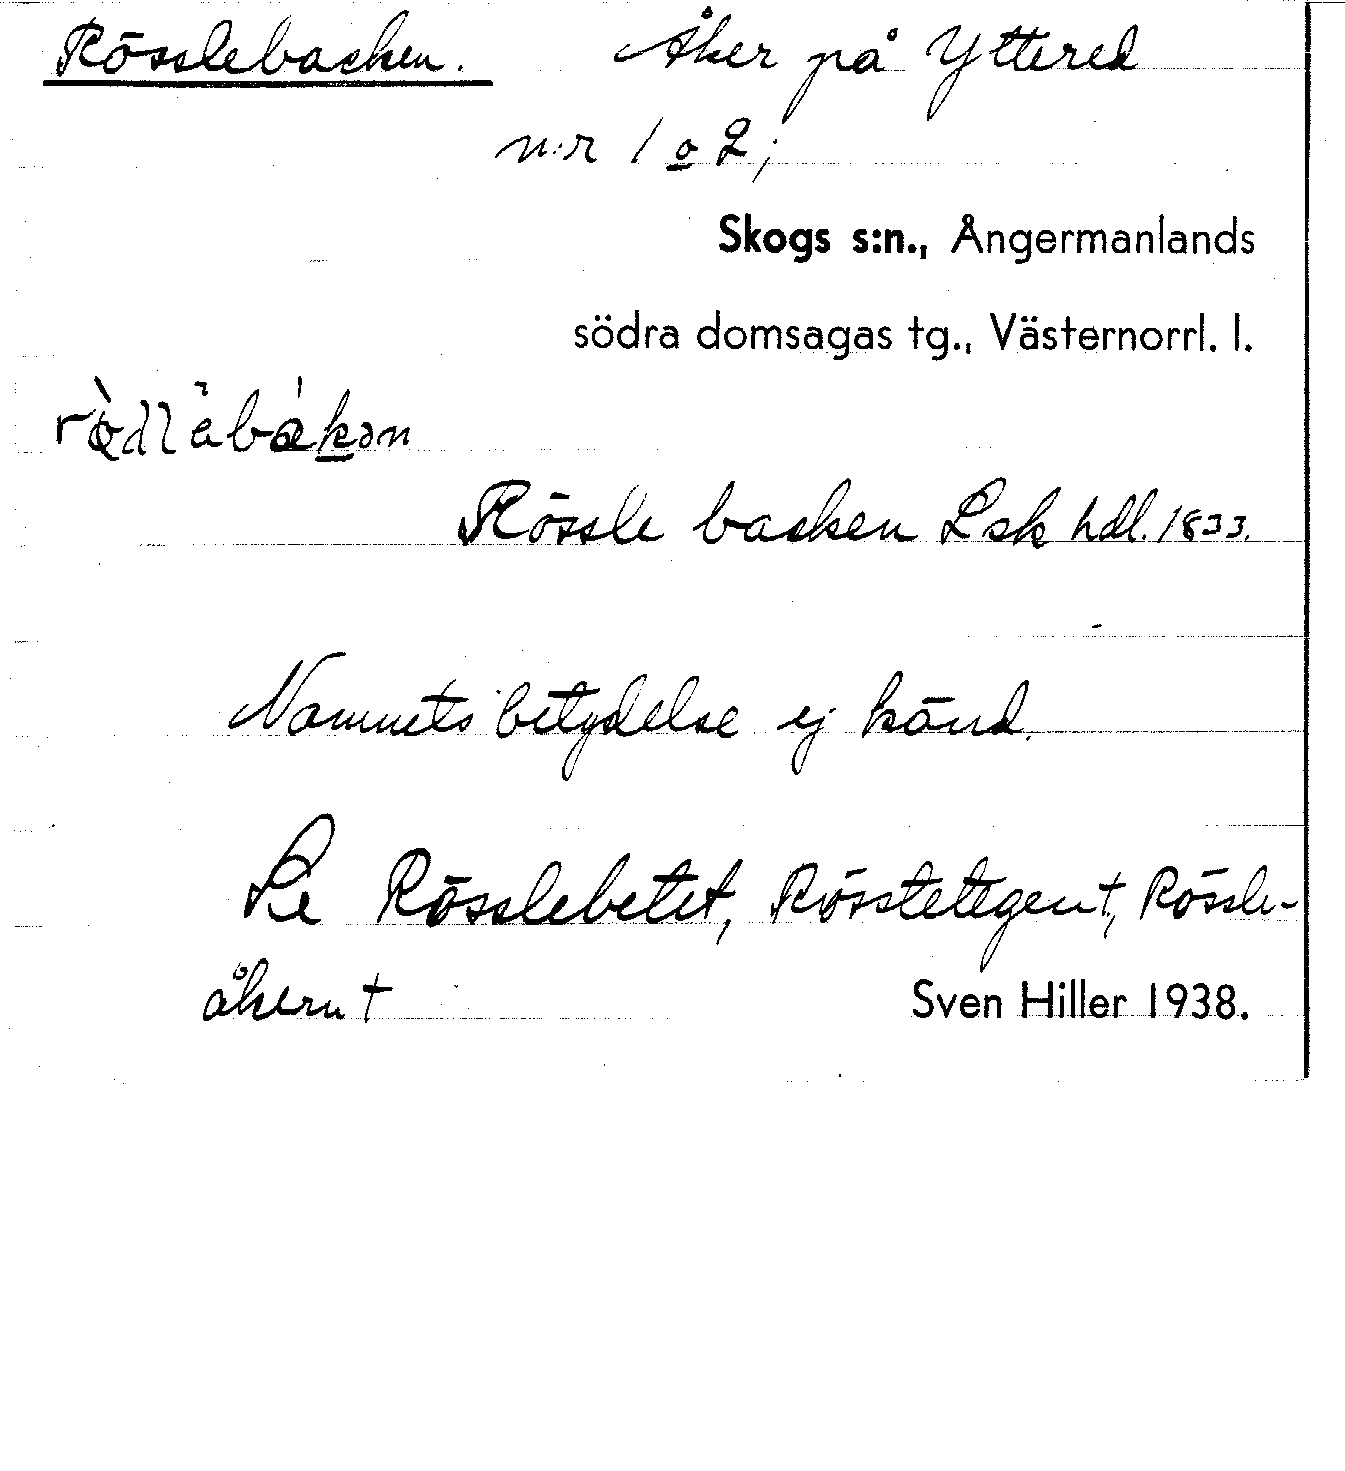 Rösslebacken. Åker på Yttered
n:r 1 o 2;
Skogs s:n., Ångermanlands
södra domsagas tg., Västernorrl. l.
Rössle backen Lsk hdl. 1833.
Namnets betydelse ej känd.
Se Rösslebetet, Rössletegen†, Rössle-
åkern †
Sven Hiller 1938.